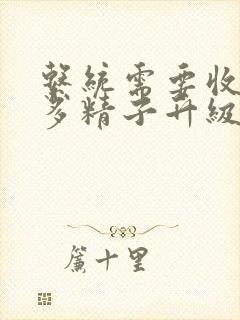 繫統需要收
多精子升級
簾十里